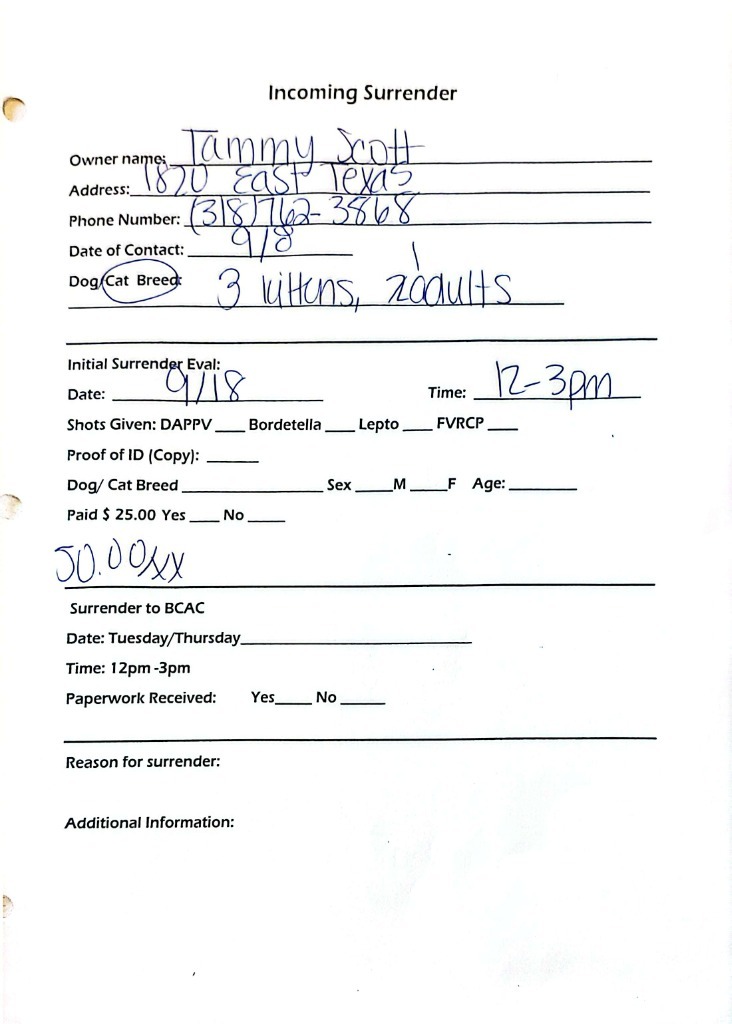 Incoming Surrender
Owner name: Tammy Scott
Address: 1820 East Texas
Phone Number: (318)762-3868
Date of Contact: 9/8
Dog/Cat Breed: 3 kittens, 2 adults
Initial Surrender Eval:
Date: 9/18 Time: 12-3pm
Shots Given: DAPPV ___ Bordetella ___ Lepto ___ FVRCP ___
Proof of ID (Copy): ___
Dog/ Cat Breed ___ Sex ___M ___F Age: ___
Paid $ 25.00 Yes ___ No ___
50.00
Surrender to BCAC
Date: Tuesday/Thursday___
Time: 12pm -3pm
Paperwork Received: Yes___ No ___
Reason for surrender:
Additional Information: